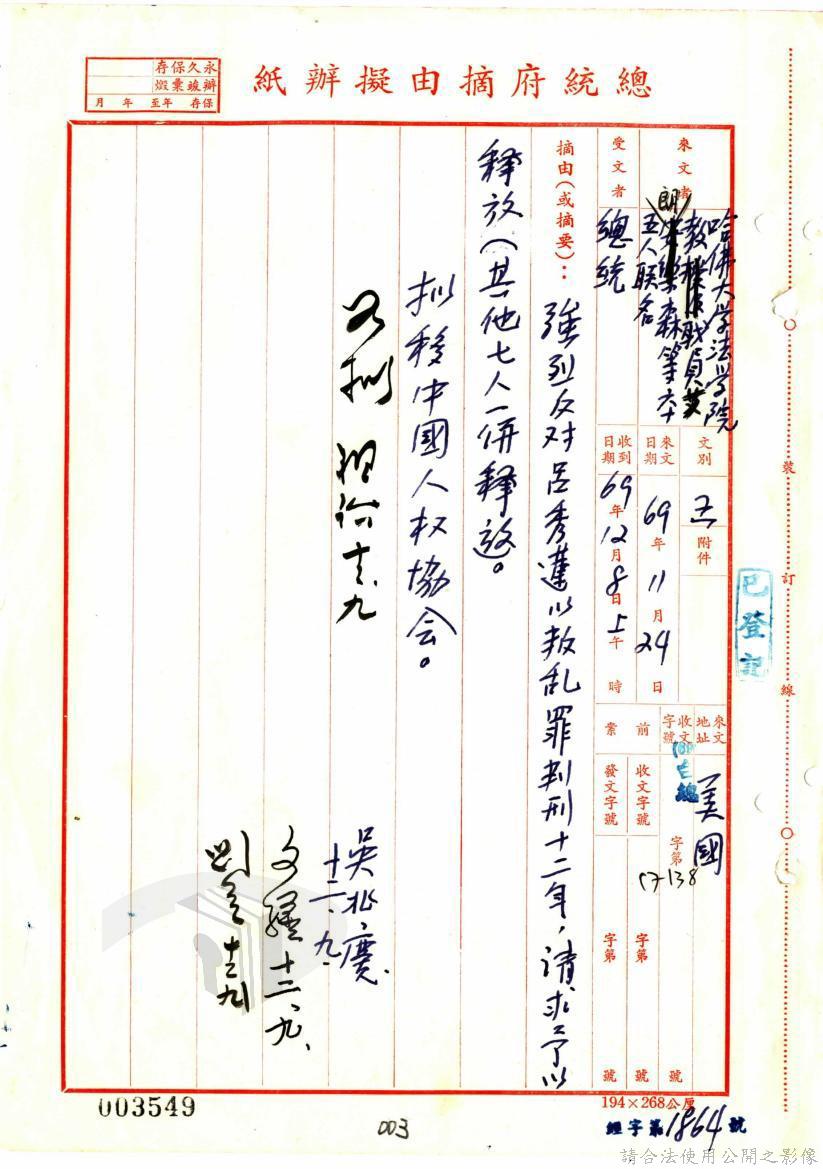 總統府摘由擬辦紙
永久保存
辦竣彙燬
保存 年至 年 月
來文者
哈佛大学法学院
教職員
朗
森等六
五人联名
受文者
總統
文別
附件
來文日期
69年11月24日
收到日期
69年12月8日上午 時
來文地址
美國
收文字號
總
字第
號
前案
收文字號
字第
號
發文字號
字第
號
摘由(或摘要):
強烈反对呂秀蓮以叛乱罪判刑十二年,請求予以
釋放(其他七人一併釋放。
拟移中國人权協会。
十二、九
吳兆慶
十二、九、
十二、九、
已登記
裝
訂
線
194×268公厘
003549
003
經字第1864號
請合法使用公開之影像